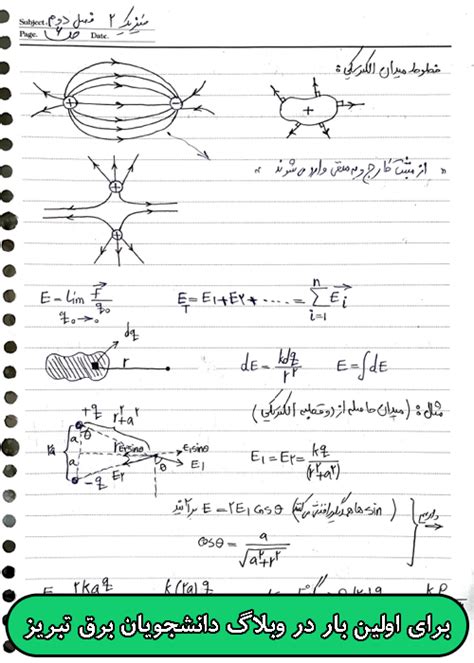 Subject. فیزیک ۲ فصل دوم
Page. ص۶ Date.
خطوط میدان الکتریکی:
+ −
+
" از مثبت خارج و به منفی وارد می شوند "
+
+
E = lim F/q₀
q₀→۰
E_T = E₁+E₂+ ..... = Σ E_i
n
i=1
dq
r
dE = kdq/r² E = ∫dE
مثال: (میدان حاصله از دوقطبه الکتریکی)
+q
r²+a²
۲a
a
a
θ
E₁sinθ
E₁
E₂
−q
E₁ = E₂ = kq/(r²+a²)
E = ۲E₁ cosθ برآیند
cosθ = a/√(a²+r²)
برای اولین بار در وبلاگ دانشجویان برق تبریز